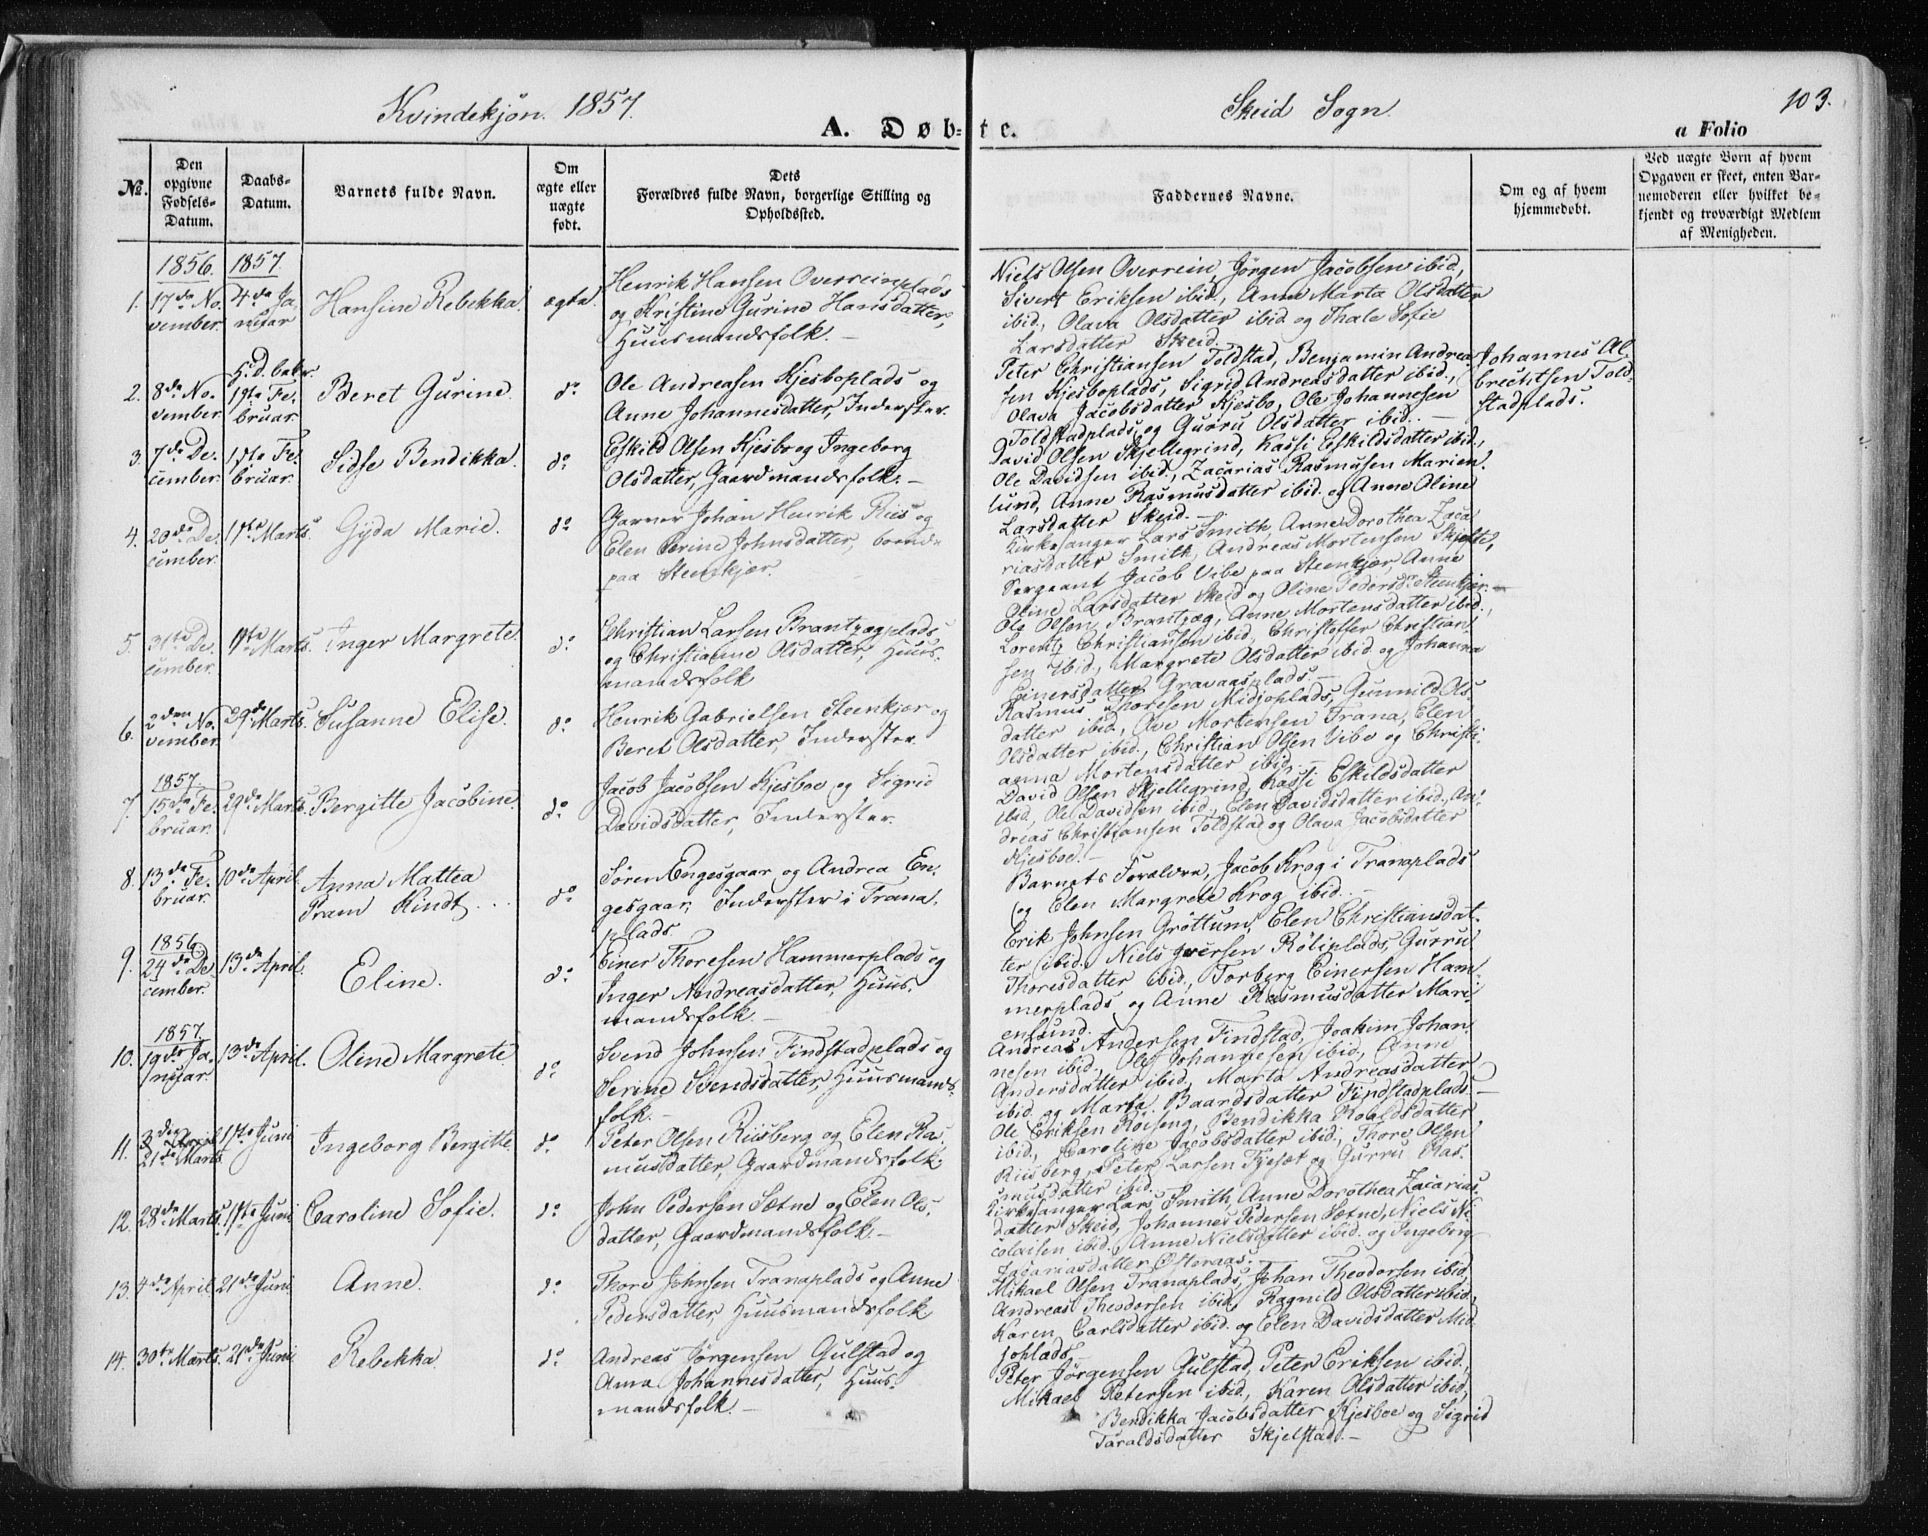 Kvindekjøn. 1857.
Skeid Sogn.
103.
A. Døb=
te.
a Folio
No.
Den opgivne Fødsels-Datum.
Daabs-Datum.
Barnets fulde Navn.
Om ægte eller uægte født.
Dets Forældres fulde Navn, borgerlige Stilling og Opholdssted.
Faddernes Navne.
Om og af hvem hjemmedøbt.
Ved uægte Børn af hvem Opgaven er skeet, enten Barnemoderen eller hvilket bekjendt og troværdigt Medlem af Menigheden.
1856. 1857.
1. 17de November. 4de Januar Hansine Rebekka. ægte
Henrik Hansen Overreinplads
og Kristine Gurine Hansdatter,
Huusmandsfolk. —
Niels Olsen Overrein, Jørgen Jacobsen ibid,
Sivert Eriksen ibid., Anne Marta Olsdatter
ibid., Olava Olsdatter ibid og Thale Sofie
Larsdatter Skeid.
2. 8de November 1ste Februar. Beret Gurine. do
Ole Andreasen Kjesboplads og
Anne Johannesdatter, Inderster.
Peter Christiansen Toldstad, Benjamin Andrea-
sen Kjesboplads, Sigrid Andreasdatter ibid.,
Olava Jacobsdatter Kjesbo, Ole Johannesen
Toldstadplads, og Gurru Olsdatter ibid. —
Johannes Al-
brechtsen Told-
stadplads.
3. 7de December. 1ste Februar. Sidse Bendikka. do
Eskild Olsen Kjesbo og Ingeborg
Olsdatter, Gaardmandsfolk. —
David Olsen Skjellegrind, Kassi Eskildsdatter ibid.,
Ole Davidsen ibid., Zacarias Rasmusen Marien-
lund, Anne Rasmusdatter ibid. og Anne Oline
Larsdatter Skeid. —
4. 20de December. 1ste Marts. Gyda Marie. do
Garver Johan Henrik Riis og
Elen Serine Johnsdatter, boende
paa Steenkjær.
Kirkesanger Lars Smith, Anne Dorothea Zaca-
riasdatter Smith, Andreas Mortensen Skjefte,
Sergeant Jacob Vibe paa Steenkjær, Anne
Oline Larsdatter Skeid og Oline Pedersdr Steenkjær. —
5. 31te December. 1ste Marts. Inger Margrete. do
Christian Larsen Brantzægplads
og Christianne Olsdatter, Huus-
mandsfolk
Ole Olsen Brantzæg, Anne Mortensdatter ibid.,
Lorentz Christiansen ibid, Christoffer Christian-
sen ibid., Margrete Olsdatter ibid og Johanna
Einersdatter Gravaasplads. —
6. 2den November. 29de Marts. Susanne Elise. do
Henrik Gabrielsen Steenkjær og
Beret Olsdatter, Inderster.
Rasmus Thoresen Midjoplads, Gunnild Ols-
datter ibid., Ove Mortensen Trana, Elen
Olsdatter ibid., Christian Olsen Vibe og Christi-
anna Mortensdatter ibid. —
1857.
7. 15de Februar. 29de Marts. Bergitte Jacobine. do
Jacob Jacobsen Kjesboe og Sigrid
Davidsdatter, Inderster.
David Olsen Skjellegrind, Kassi Eskildsdatter
ibid, Ole Davidsen ibid., Elen Davidsdatter ibid., An-
dreas Christiansen Toldstad og Olava Jacobsdatter
Kjesboe. —
8. 13de Februar. 10de April. Anna Mattea
Pram Kindt. do
Søren Engesgaar og Andrea En-
gesgaar, Inderster i Trana-
plads
Barnets Forældre, Jacob Krog i Tranaplads
og Elen Margrete Krog ibid. —
1856.
9. 24de December. 13de April. Eline. do
Einer Thoresen Hammerplads og
Inger Andreasdatter, Huus-
mandsfolk. —
Erik Johnsen Grøttum, Elen Christiansdat-
ter ibid., Niels Iversen Røliplads, Gurru
Thoresdatter ibid., Torberg Einersen Ham-
merplads og Anne Rasmusdatter Mari-
enlund.
1857
10. 19de Januar. 13de April. Oline Margrete. do
Svend Johnsen Findstadplads og
Serine Svendsdatter, Huusmands-
folk. —
Andreas Andersen Findstad, Joakim Johan-
nesen ibid., Ole Johannesen ibid, Anne
Andersdatter ibid, Marta Andreasdatter
ibid og Marta Baardsdatter Findstadplads. —
11. 21de Marts 1ste Juni Ingeborg Bergitte. do
Peter Olsen Riisberg og Elen Ras-
musdatter, Gaardmandsfolk.
Ole Eriksen Røiseng, Bendikka Roaldsdatter
ibid., Caroline Jacobsdatter ibid., Thore Olsen
Riisberg, Peter Larsen Fjesæt og Gurru Ras-
musdatter ibid.
12. 28de Marts. 1ste Juni Caroline Sofie. do
John Pedersen Sætne og Elen Ols-
datter, Gaardmandsfolk. —
Kirkesanger Lars Smith, Anne Dorothea Zacarias-
datter Skeid, Johannes Pedersen Sætne, Niels Ni-
colaisen ibid., Anne Nielsdatter ibid. og Ingeborg
Zacariasdatter Østeraas.
13. 4de April. 21de Juni Anne. do
Thore Johnsen Tranaplads og Anne
Pedersdatter, Huusmandsfolk
Mikael Olsen Tranaplads, Johan Theodorsen ibid,
Andreas Theodorsen ibid, Ragnild Olsdatter ibid,
Karen Carlsdatter ibid. og Elen Davidsdatter Mid-
joplads.
14. 30te Marts. 21de Juni Rebekka. do
Andreas Jørgensen Gulstad og
Anna Johannesdatter, Huus-
mandsfolk. —
Peter Jørgensen Gulstad, Peter Eriksen ibid.,
Mikael Petersen ibid., Karen Olsdatter ibid,
Bendikka Jacobsdatter Kjesboe og Sigrid
Taraldsdatter Skjelstad. —